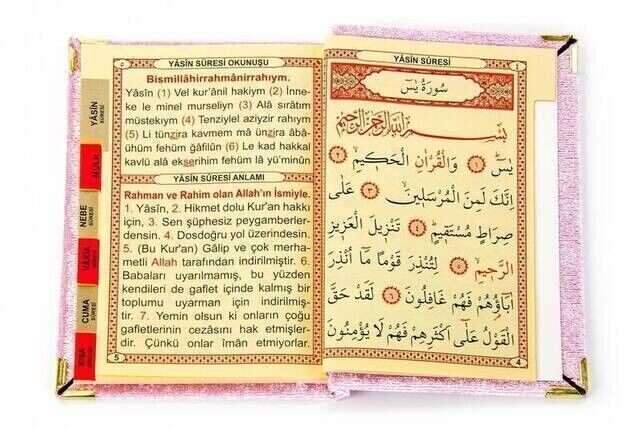 YÂSİN SÛRESİ
٤
سُورَةُ يٰسٓ
بِسْمِ اللّٰهِ الرَّحْمٰنِ الرَّحٖيمِ
يٰسٓ ۚ ١ وَالْقُرْاٰنِ الْحَكٖيمِ ۙ ٢
اِنَّكَ لَمِنَ الْمُرْسَلٖينَ ۙ ٣ عَلٰى
صِرَاطٍ مُسْتَقٖيمٍ ؕ ٤ تَنْزٖيلَ الْعَزٖيزِ
الرَّحٖيمِ ۙ ٥ لِتُنْذِرَ قَوْمًا مَٓا اُنْذِرَ
اٰبَٓاؤُ۬هُمْ فَهُمْ غَافِلُونَ ٦ لَقَدْ حَقَّ
الْقَوْلُ عَلٰٓى اَكْثَرِهِمْ فَهُمْ لَا يُؤْمِنُونَ
4
٥
YÂSİN SÛRESİ OKUNUŞU
Bismillâhirrahmânirrahıym.
Yâsîn (1) Vel kur'ânil hakiym (2) İnne-
ke le minel murseliyn (3) Alâ sırâtım
müstekıym (4) Tenziylel aziyzir rahıym
(5) Li tünzira kavmem mâ ünzira âbâ-
ühüm fehüm ğâfilûn (6) Le kad hakkal
kavlü alâ ekserihim fehüm lâ yü'minûn
YÂSİN SÛRESİ ANLAMI
Rahman ve Rahim olan Allah'ın İsmiyle.
1. Yâsîn, 2. Hikmet dolu Kur'an hakkı
için, 3. Sen şüphesiz peygamberler-
densin. 4. Dosdoğru yol üzerindesin.
5. (Bu Kur'an) Gâlip ve çok merha-
metli Allah tarafından indirilmiştir. 6.
Babaları uyarılmamış, bu yüzden
kendileri de gaflet içinde kalmış bir
toplumu uyarman için indirilmiş-
tir. 7. Yemin olsun ki onların çoğu
gafletlerinin cezasını hak etmişler-
dir. Çünkü onlar îmân etmiyorlar.
5
YÂSİN
SÛRESİ
MÜLK
NEBE
SÛRESİ
VÂKIA
SÛRESİ
CUMA
SÛRESİ
KISA